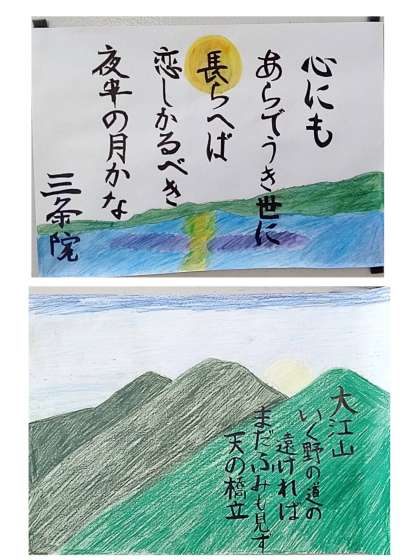 心にも
あらでうき世に
長らへば
恋しかるべき
夜半の月かな
三条院
大江山
いく野の道の
遠ければ
まだふみも見ず
天の橋立